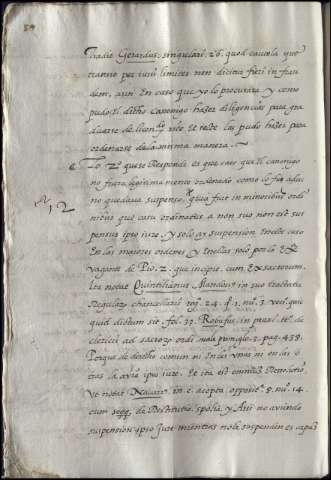 tradit Gerardus, singulari. 26. quod cautela quo
tranvio per iuris limites non dicitur fieri in frau
dem, aun En caso que yo lo procurara y como
pudo El dicho canonigo hazer diligencias para gra
duarse de licendo. este El teste las pudo hazer para
ordenarse de la misma manera.
Lo 2º que se Responde es que caso que El canonigo
no fuera legitima mente ordenado como lo fue aduc
no quedava suspenso, quia fuit in minoribus ordi
nibus quo casu ordinatus a non suo non est sus
pensus ipso iure. y solo ay suspension En este caso
En las maiores ordenes y En ellas solo por la Ex
vagante de Pio. 2. que incipit. cum Ex sacrorum,
Ita notat Quintilianus Mandosius in suo tractatu
Regulae chancellariae reg. 24. q. 1. nu. 3. veri. quic
quid dictum sit. fol. 37. Rebuffus, in praxi. te. de
clericis ad sacros ordi. male promo. glo. 3. pag. 439.
Porque de derecho comun ni En las unas ni en las o
tras la avia ipso iure. Et ita est omnium Resolutio
Ut notat Navarr. in c. accepta. opposit. 8. nu. 14.
cum seqq. de Restitutio. spolia. y Ansi no aviendo
suspension ipso jure mientras no le suspenden es capaz